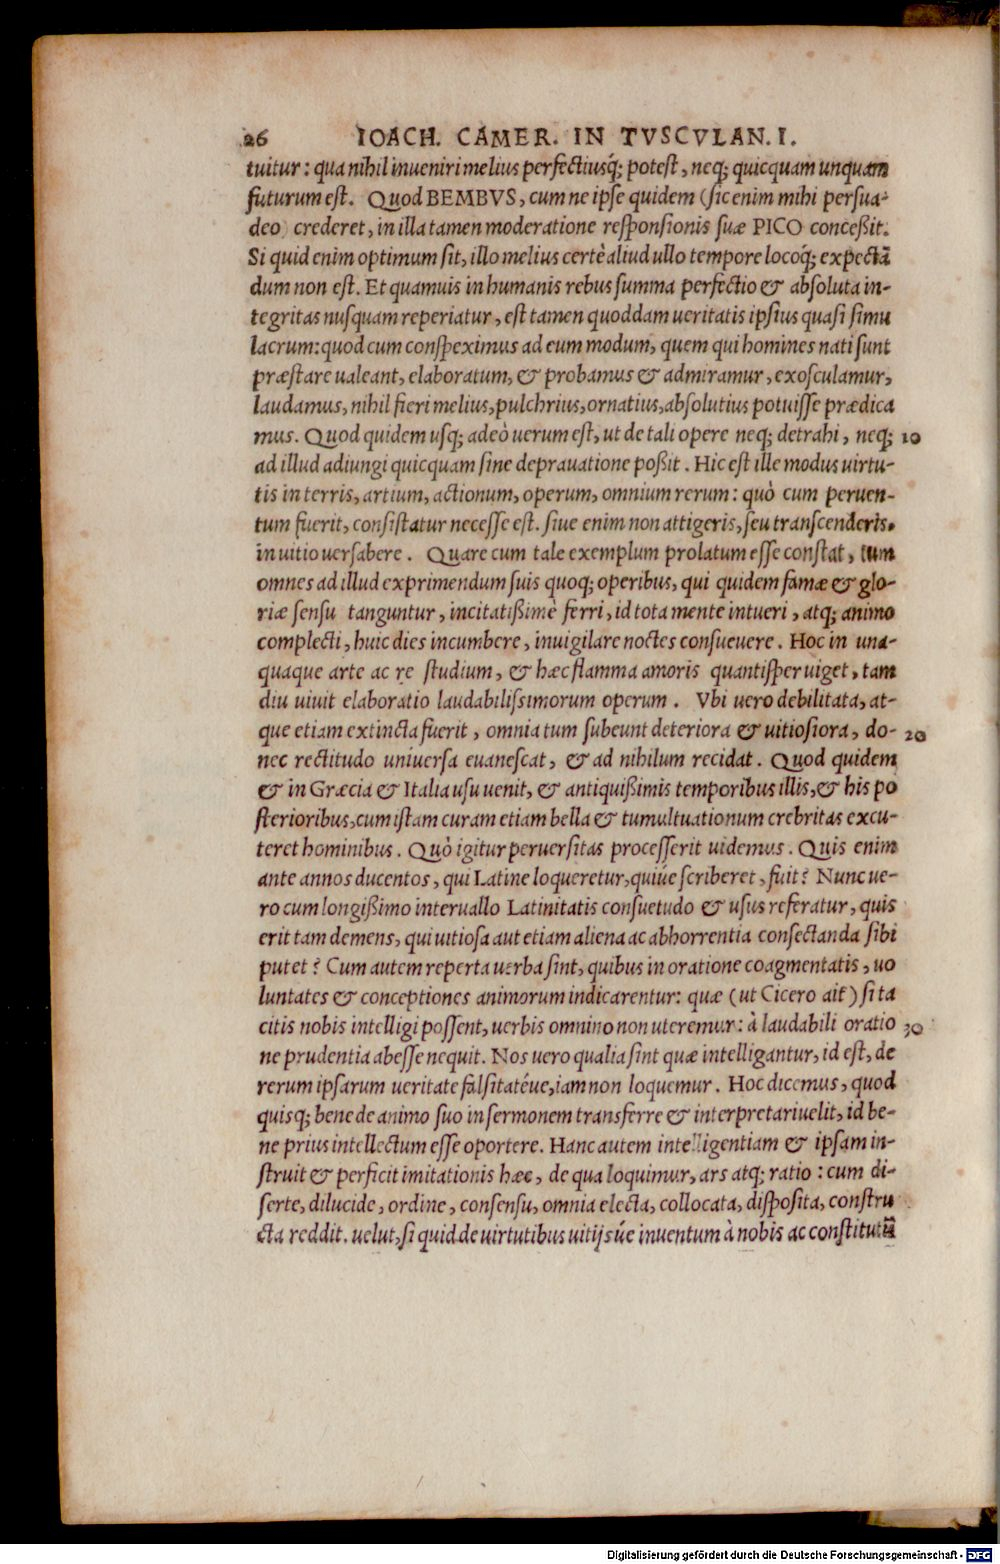 26 IOACH. CAMER. IN TVSCVLAN. I.
tuitur: qua nihil inueniri melius perfectiusq́; potest, neq; quicquam unquam
futurum est. Quod BEMBVS, cum ne ipse quidem (sic enim mihi persua-
deo) crederet, in illa tamen moderatione responsionis suæ PICO conceßit.
Si quid enim optimum sit, illo melius certè aliud ullo tempore locoq́; expectā
dum non est. Et quamuis in humanis rebus summa perfectio & absoluta in-
tegritas nusquam reperiatur, est tamen quoddam ueritatis ipsius quasi simu
lacrum: quod cum conspeximus ad eum modum, quem qui homines nati sunt
præstare ualeant, elaboratum, & probamus & admiramur, exosculamur,
laudamus, nihil fieri melius, pulchrius, ornatius, absolutius potuisse prædica
mus. Quod quidem usq; adeò uerum est, ut de tali opere neq; detrahi, neq; 10
ad illud adiungi quicquam sine deprauatione poßit. Hic est ille modus uirtu-
tis in terris, artium, actionum, operum, omnium rerum: quò cum peruen-
tum fuerit, consistatur necesse est. siue enim non attigeris, seu transcenderis,
in uitio uersabere. Quare cum tale exemplum prolatum esse constat, tum
omnes ad illud exprimendum suis quoq; operibus, qui quidem famæ & glo-
riæ sensu tanguntur, incitatißimè ferri, id tota mente intueri, atq; animo
complecti, huic dies incumbere, inuigilare noctes consueuere. Hoc in una-
quaque arte ac re studium, & hæc flamma amoris quantisper uiget, tam
diu uiuit elaboratio laudabilissimorum operum. Vbi uero debilitata, at-
que etiam extincta fuerit, omnia tum subeunt deteriora & uitiosiora, do- 20
nec rectitudo uniuersa euanescat, & ad nihilum recidat. Quod quidem
& in Græcia & Italia usu uenit, & antiquißimis temporibus illis, & his po
sterioribus, cum istam curam etiam bella & tumultuationum crebritas excu-
teret hominibus. Quò igitur peruersitas processerit uidemus. Quis enim
ante annos ducentos, qui Latine loqueretur, quiúe scriberet, fuit? Nunc ue-
ro cum longißimo interuallo Latinitatis consuetudo & usus referatur, quis
erit tam demens, qui uitiosa aut etiam aliena ac abhorrentia consectanda sibi
putet? Cum autem reperta uerba sint, quibus in oratione coagmentatis, uo
luntates & conceptiones animorum indicarentur: quæ (ut Cicero ait) si ta
citis nobis intelligi possent, uerbis omnino non uteremur: à laudabili oratio 30
ne prudentia abesse nequit. Nos uero qualia sint quæ intelligantur, id est, de
rerum ipsarum ueritate falsitatéue, iam non loquemur. Hoc dicemus, quod
quisq; bene de animo suo in sermonem transferre & interpretari uelit, id be-
ne prius intellectum esse oportere. Hanc autem intelligentiam & ipsam in-
struit & perficit imitationis hæc, de qua loquimur, ars atq; ratio: cum di-
serte, dilucide, ordine, consensu, omnia electa, collocata, disposita, constru
cta reddit. uelut, si quid de uirtutibus uitijsúe inuentum à nobis ac constitutū
Digitalisierung gefördert durch die Deutsche Forschungsgemeinschaft - DFG